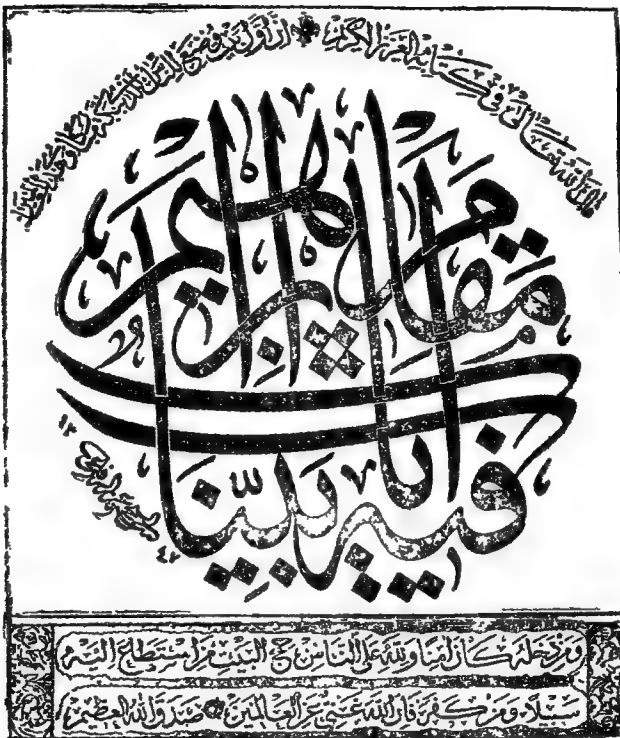 قال الله تعالى في كتابه العزيز الكريم إن أول بيت وضع للناس للذي ببكة مباركا وهدى للعالمين
فيه آيات بينات مقام إبراهيم
١٣
٤٢
ومن دخله كان آمنا ولله على الناس حج البيت من استطاع إليه
سبيلا ومن كفر فإن الله غني عن العالمين صدق الله العظيم